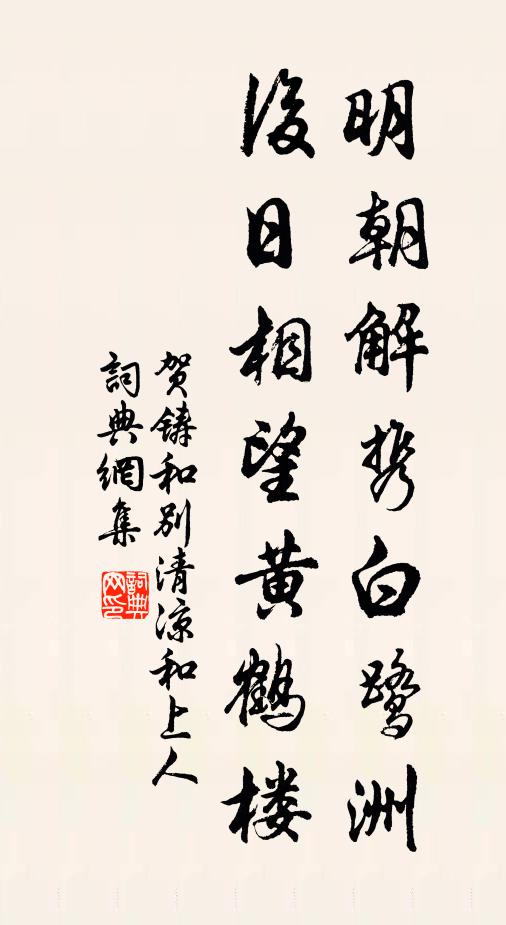 明朝解携白鹭洲
後日相望黄鶴楼
贺鑄和别清涼和上人
詞典網集
詞典网印